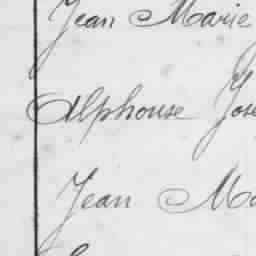 Jean Marie
Alphonse Jose
Jean Ma